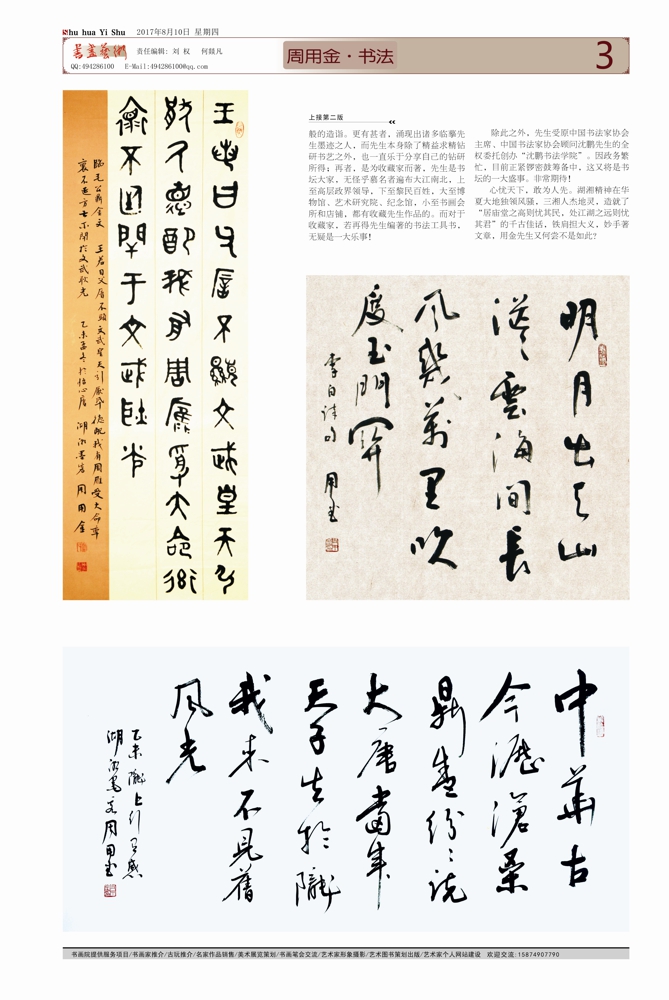 Shu hua Yi Shu 2017年8月10日 星期四
书画艺术
责任编辑: 刘 权 何燚凡
QQ:494286100 E-Mail:494286100@qq.com
周用金·书法
3
上接第二版
般的造诣。更有甚者，涌现出诸多临摹先
生墨迹之人，而先生本身除了精益求精钻
研书艺之外，也一直乐于分享自己的钻研
所得；再者，是为收藏家而著，先生是书
坛大家，无怪乎慕名者遍布大江南北，上
至高层政界领导，下至黎民百姓，大至博
物馆、艺术研究院、纪念馆，小至书画会
所和店铺，都有收藏先生作品的。而对于
收藏家，若再得先生编著的书法工具书，
无疑是一大乐事！
除此之外，先生受原中国书法家协会
主席、中国书法家协会顾问沈鹏先生的全
权委托创办“沈鹏书法学院”。因政务繁
忙，目前正紧锣密鼓筹备中，这又将是书
坛的一大盛事。非常期待！
心忧天下，敢为人先。湖湘精神在华
夏大地独领风骚，三湘人杰地灵，造就了
“居庙堂之高则忧其民，处江湖之远则忧
其君”的千古佳话，铁肩担大义，妙手著
文章，用金先生又何尝不是如此？
王若曰父
不顯文武皇天引
厥德配我有周膺受大命
不閈于文武耿光
臨毛公鼎全文 王若曰父 不顯文武皇天引厭厥
德配我有周膺受大命率
懷不廷方亡不閈於文武耿光
周用金
明月出天山
蒼雲海間長
風幾萬里吹
度玉門關
李白詩句
中華古
今歷滄桑
鼎盛紛紛說
大唐當年
天子生於隴
我來不見舊
風光
乙未隴上行有感
湖湘
书画院提供服务项目/书画家推介/古玩推介/名家作品销售/美术展览策划/书画笔会交流/艺术家形象摄影/艺术图书策划出版/艺术家个人网站建设 欢迎交流:15874907790